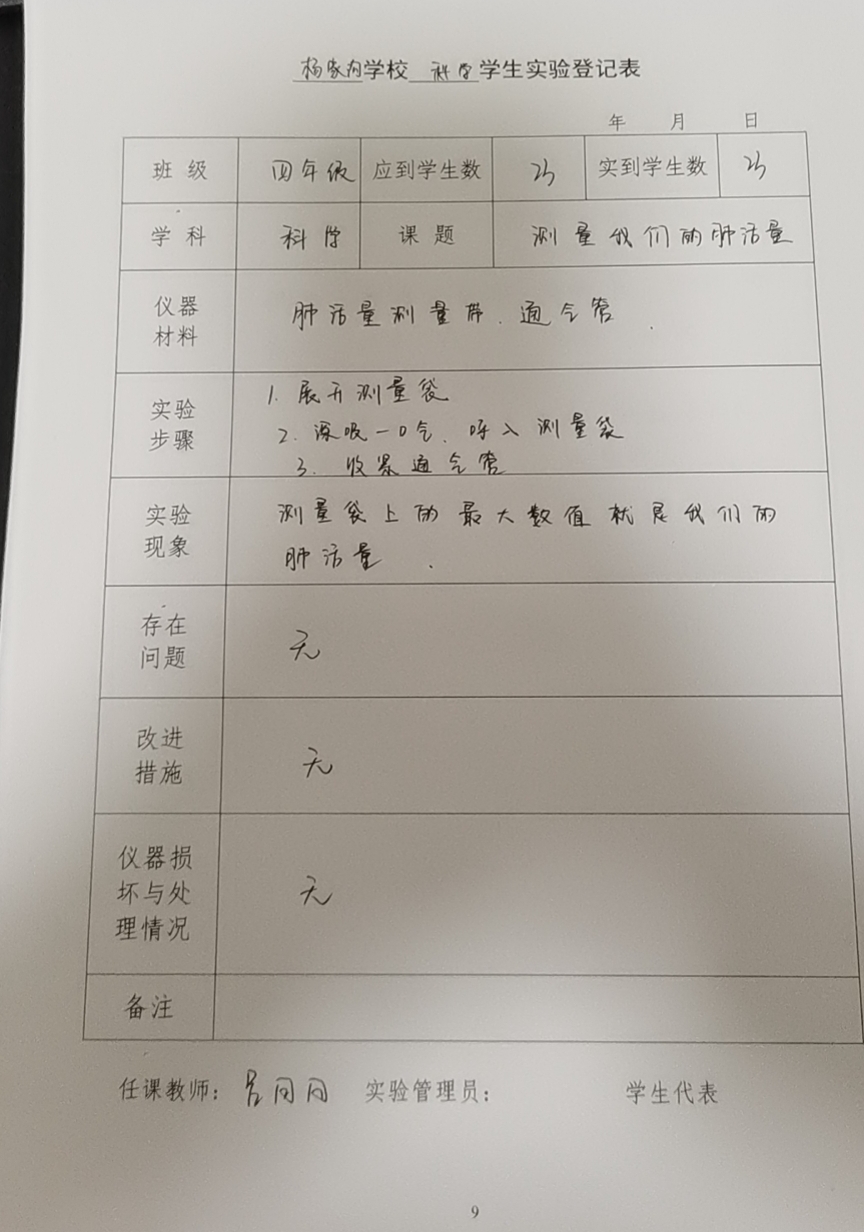 杨家沟学校 科学学生实验登记表
年 月 日
班级 四年级 应到学生数 23 实到学生数 23
学科 科学 课题 测量我们的肺活量
仪器材料 肺活量测量带、通气管.
实验步骤 1. 展开测量袋
2. 深吸一口气、呼入测量袋
3. 收紧通气管
实验现象 测量袋上的最大数值就是我们的
肺活量.
存在问题 无
改进措施 无
仪器损坏与处理情况 无
备注
任课教师: 实验管理员: 学生代表
9